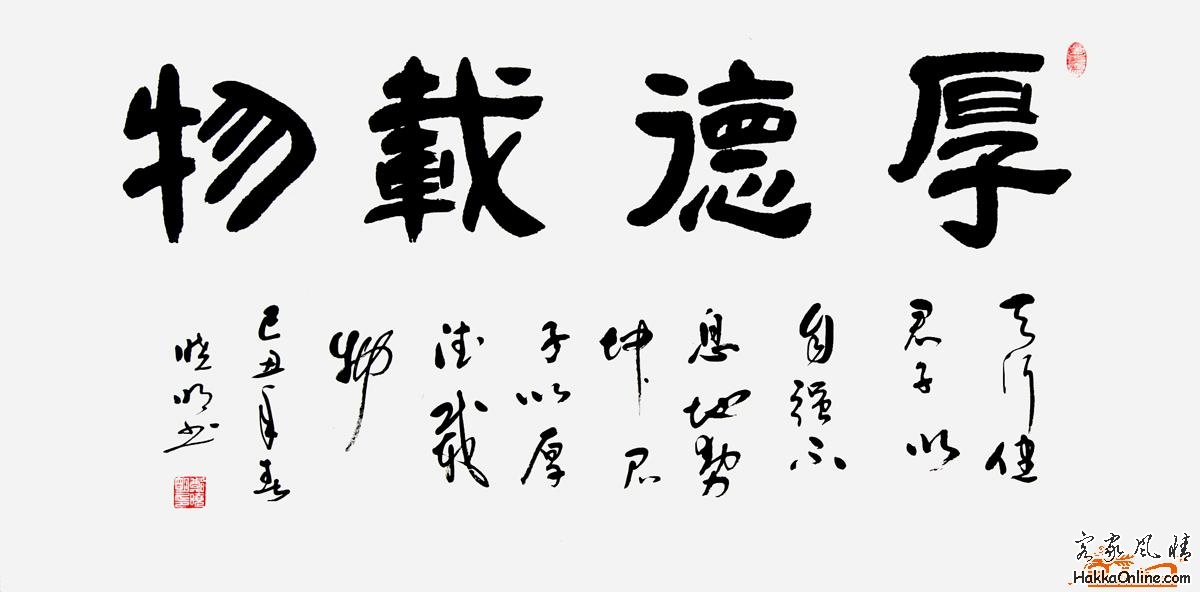 厚德載物
天行健
君子以
自强不
息地势
坤君
子以厚
德载
物
己丑年春
晓明书
客家风情
HakkaOnline.com